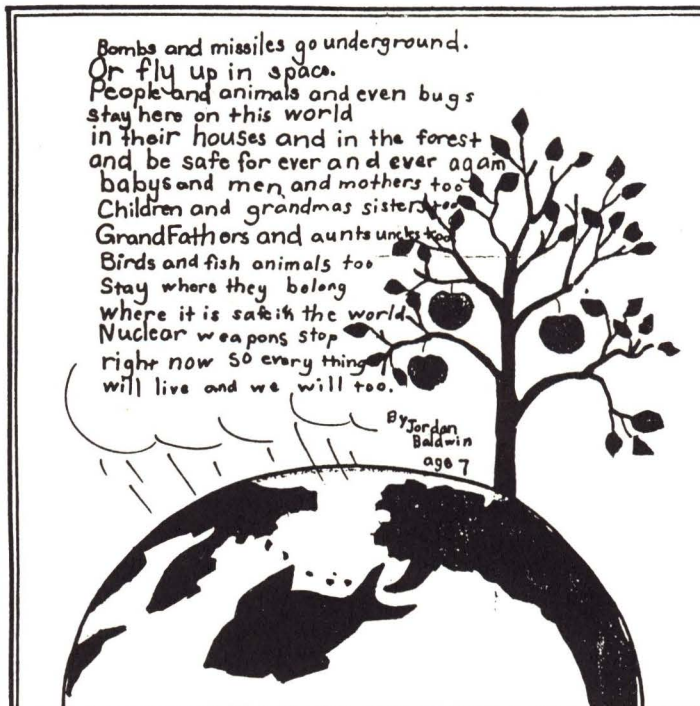 Bombs and missiles go underground.
Or fly up in space.
People and animals and even bugs
stay here on this world
in their houses and in the forest
and be safe for ever and ever again
babys and men and mothers too
Children and grandmas sisters too
GrandFathers and aunts uncles too
Birds and fish animals too
Stay where they belong
where it is safe in the world
Nuclear weapons stop
right now so every thing
will live and we will too.
By Jordan
Baldwin
age 7